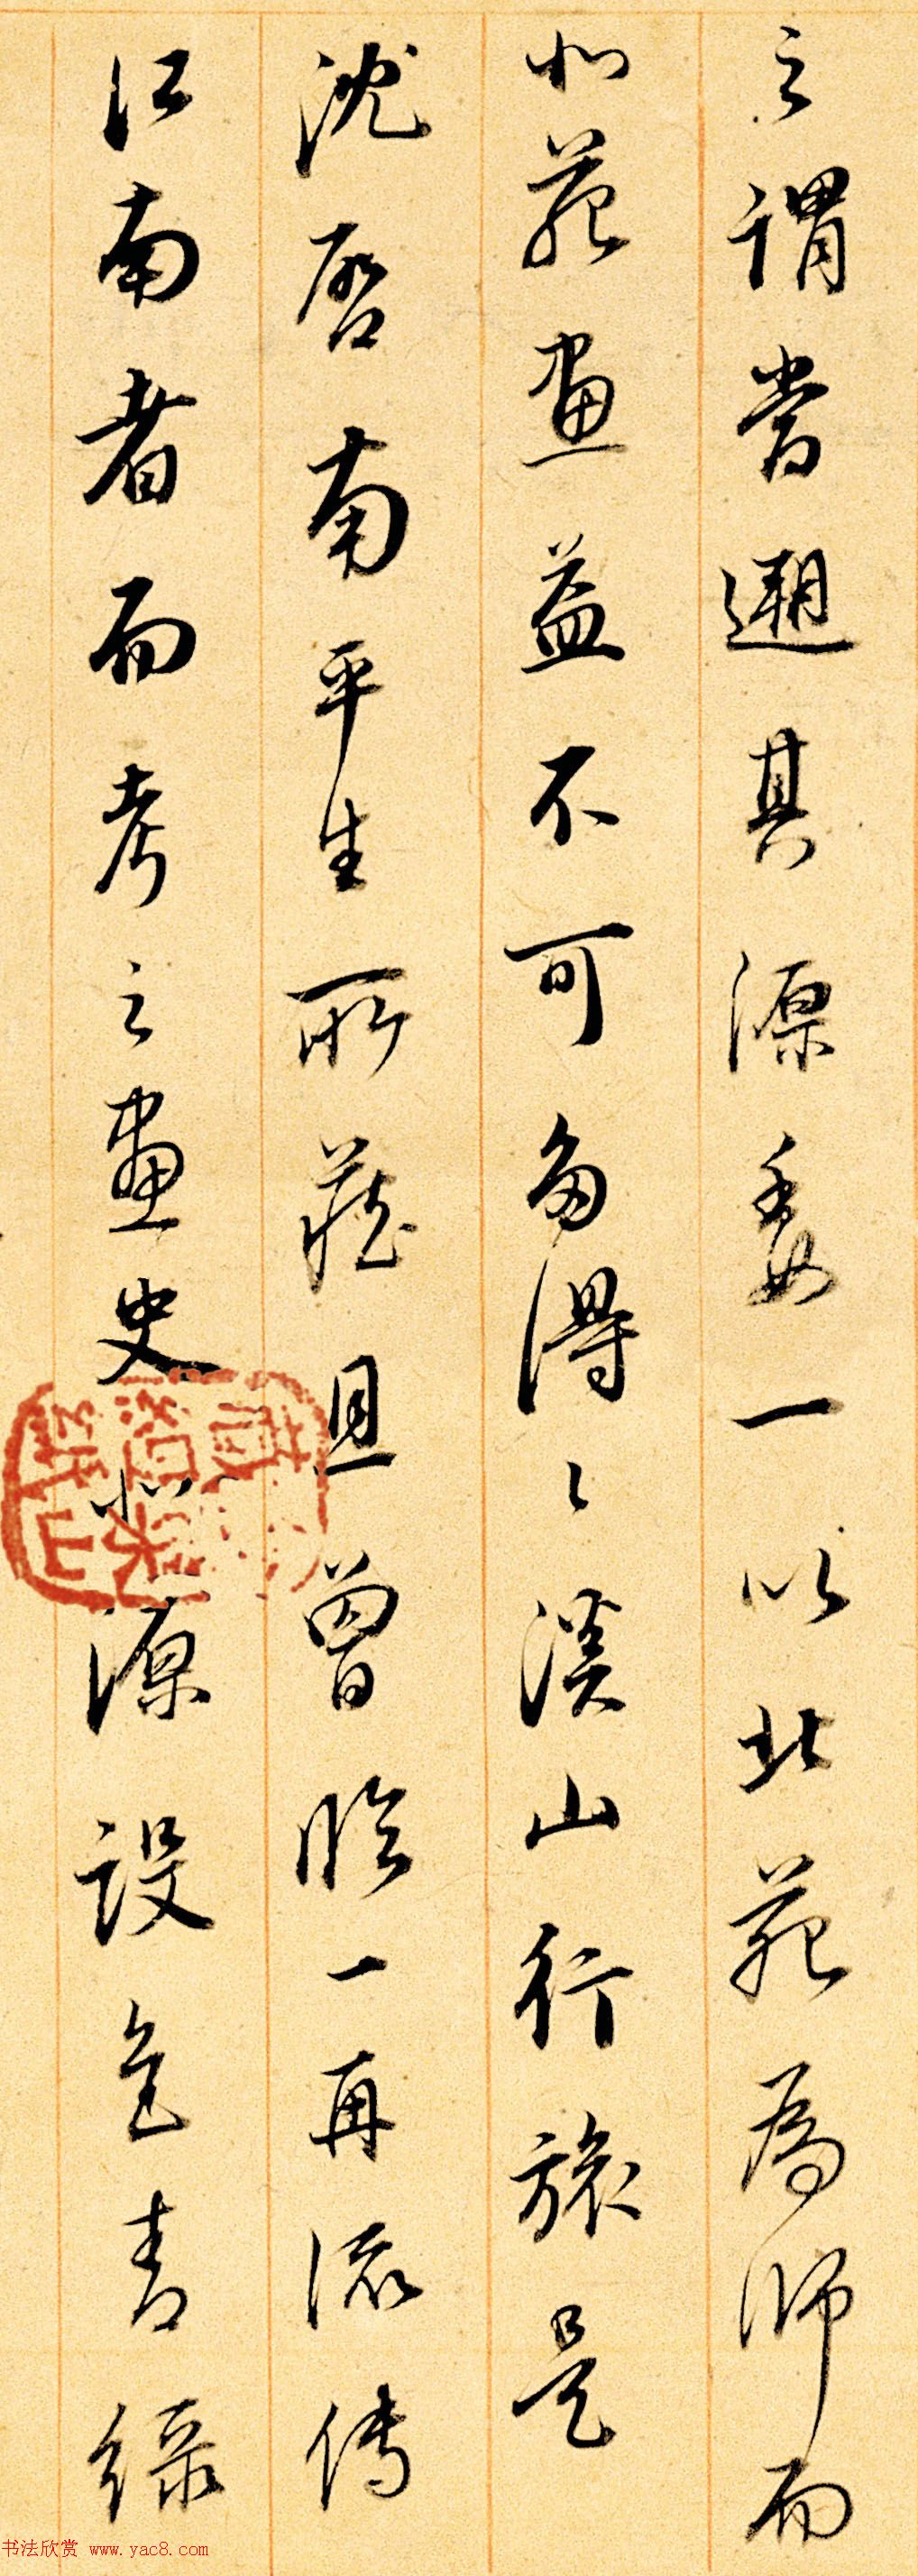 之謂嘗遡其源委一以北苑為師而
北苑畫益不可多得得溪山行旅是
沈啓南平生所藏且曾臨一再流傳
江南者而考之畫史北源設色青綠
书法欣赏 www.yac8.com